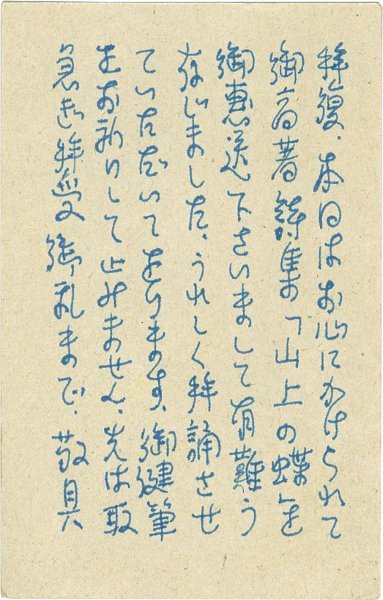 拝復、本日はお心にかけられて
御高著詩集「山上の蝶を
御恵送下さいまして有難う
存じました、うれしく拝誦させ
ていただいてをります、御健筆
をお祈りして止みません、先は取
急ぎ拝受御礼まで、敬具